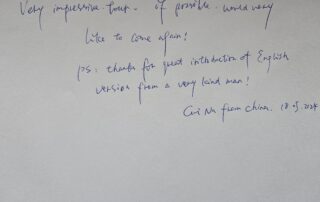 Very impressive tour. if possible. would very
like to come again!
ps: thanks for great introduction of English
version from a very kind man!
from China.